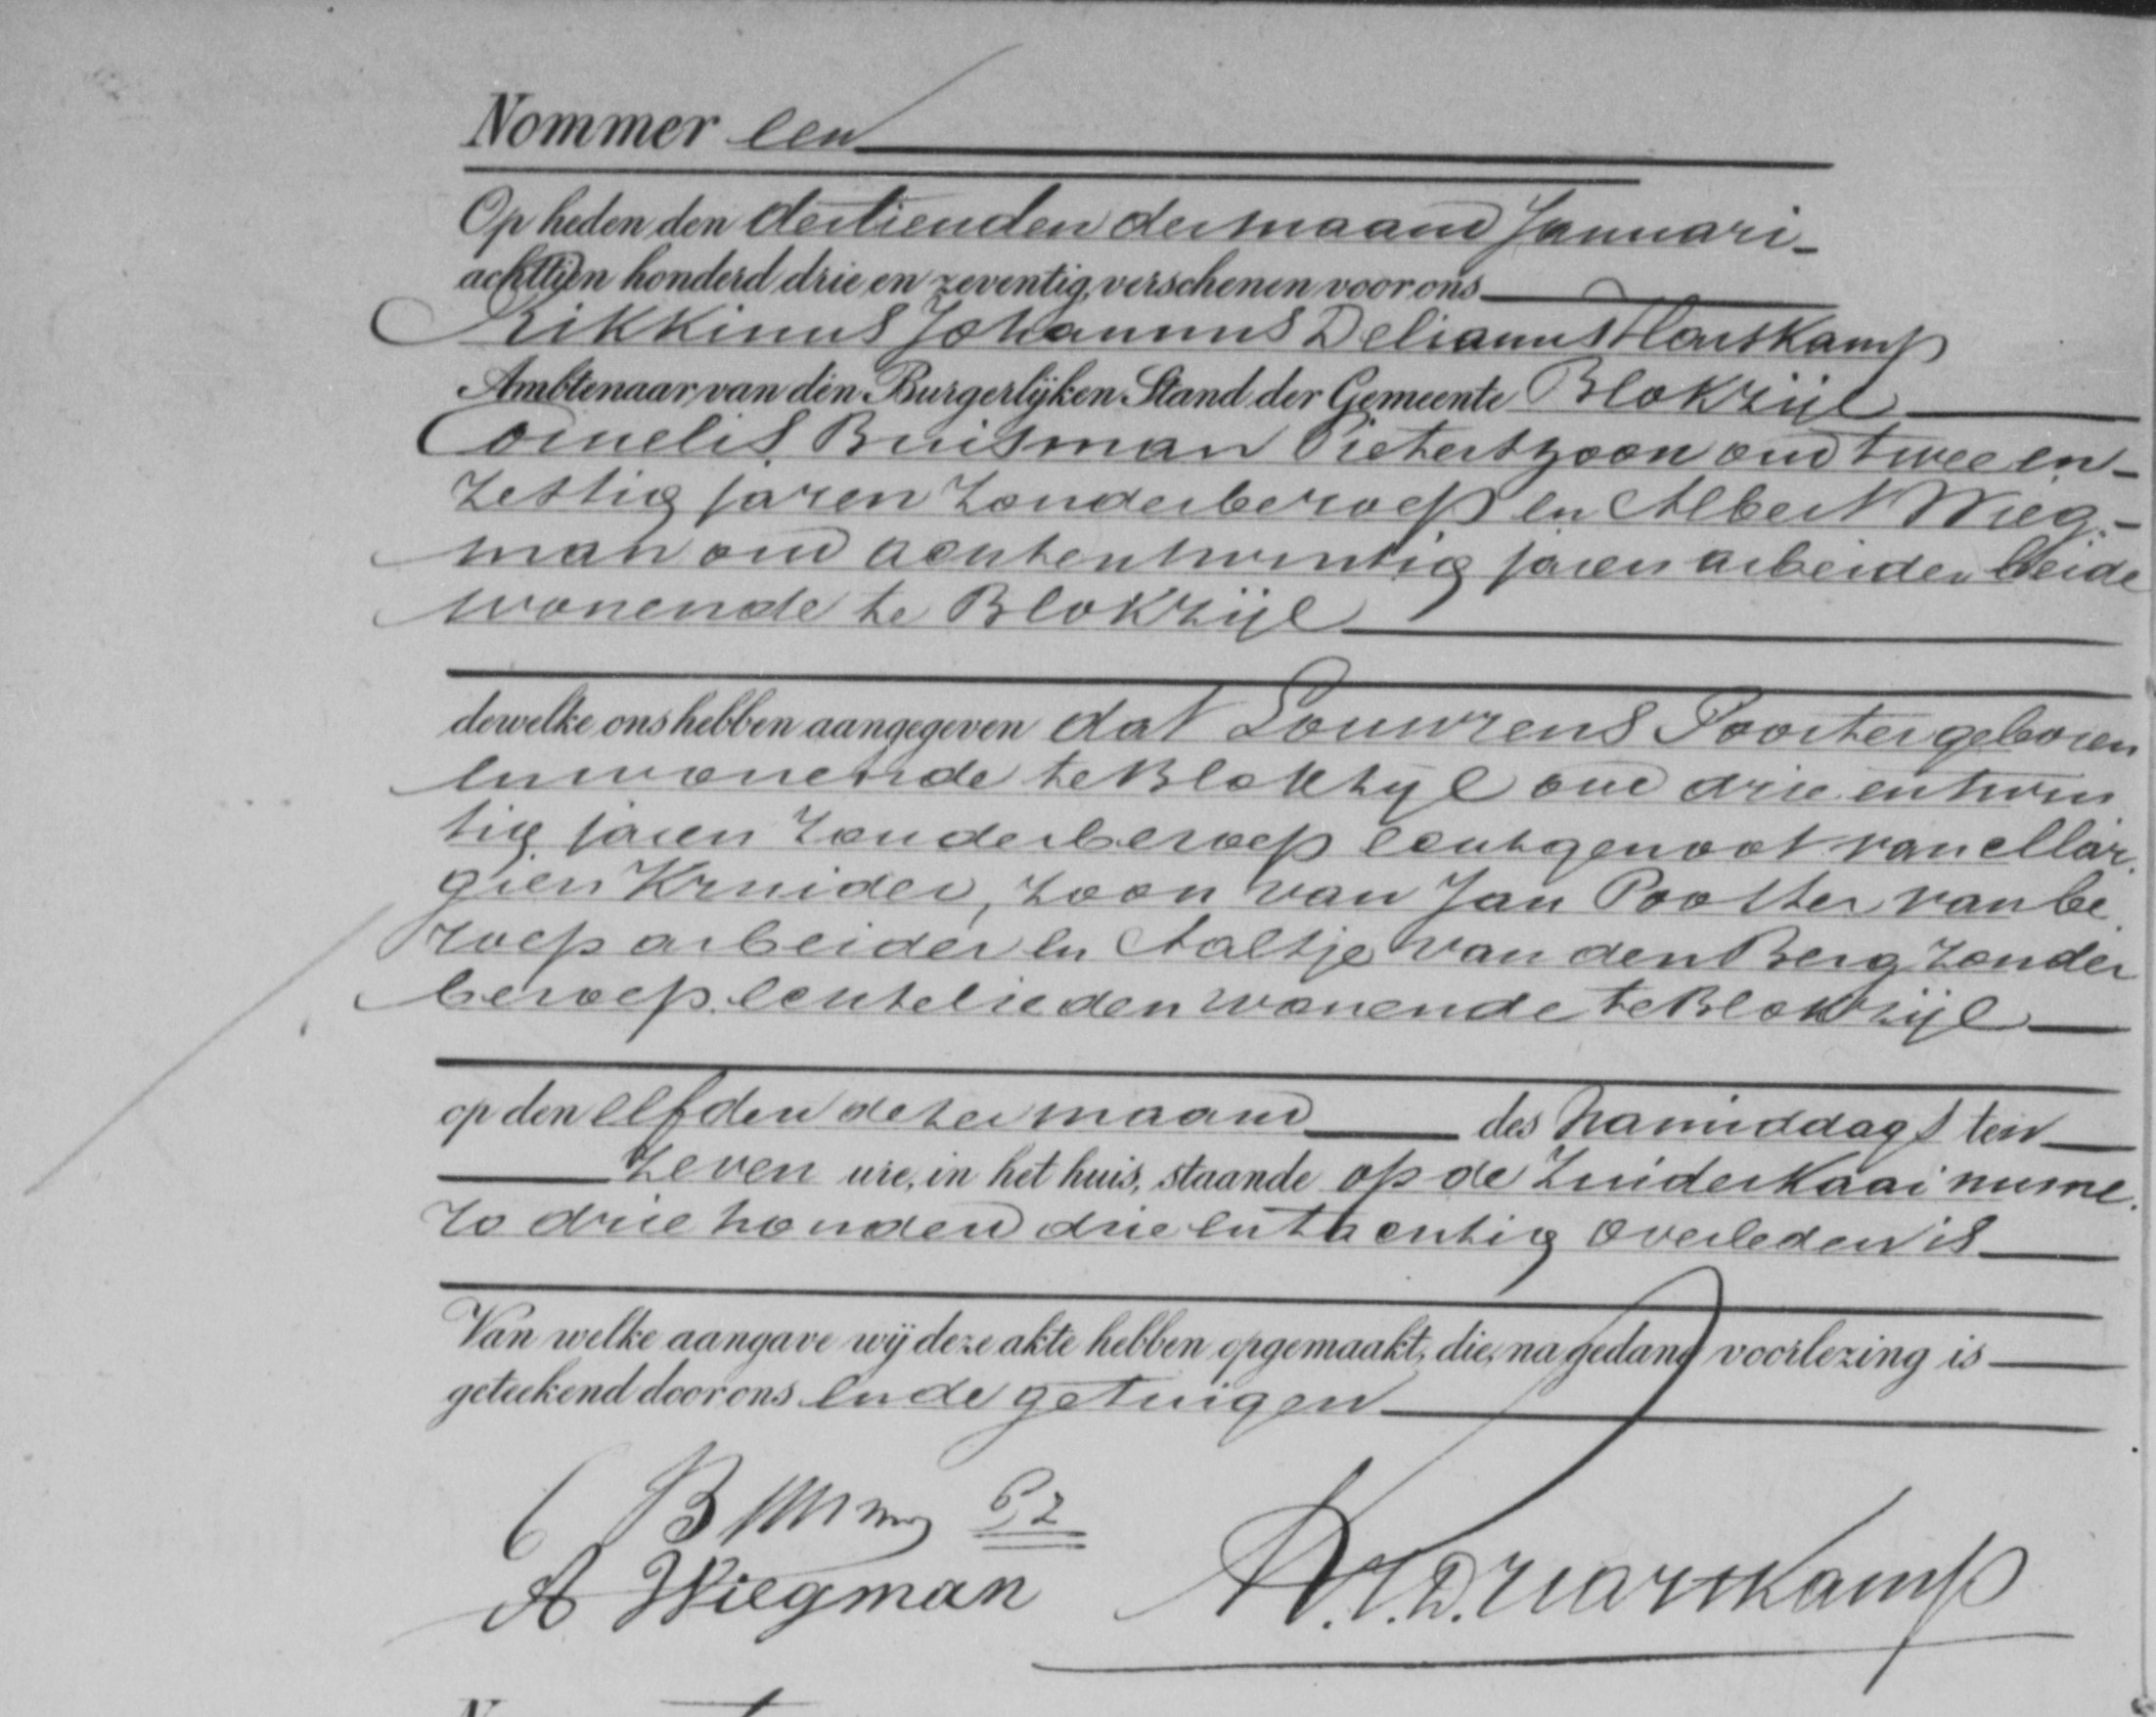 Nommer een
Op heden den dertienden der maand Januari
achttien honderd drie en zeventig, verschenen voor ons
Rikkinus Johannus Delianus Harskamp
Ambtenaar van den Burgerlijken Stand der Gemeente Blokzijl
Cornelis Buisman Pieterszoon oud twee en
zestig jaren zonder beroep en Albert Wieg-
man oud achtentwintig jaren arbeider beide
wonende te Blokzijl
dewelke ons hebben aangegeven dat Louwrens Poorter geboren
en wonende te Blokzijl oud drie entwin
tig jaren zonder beroep echtgenoot van Mar
gien Kruider, zoon van Jan Pootter van be
roep arbeider en Aaltje van den Berg zonder
beroep echtelieden wonende te Blokzijl
op den elfden dezer maand des namiddags ten
zeven ure, in het huis, staande op de Zuiderkaai nume
ro drie honderd drie entachtig overleden is
Van welke aangave wij deze akte hebben opgemaakt, die, na gedane voorlezing is
geteekend door ons en de getuigen
C Buisman Pz
A Wiegman
R.J.D. Harskamp